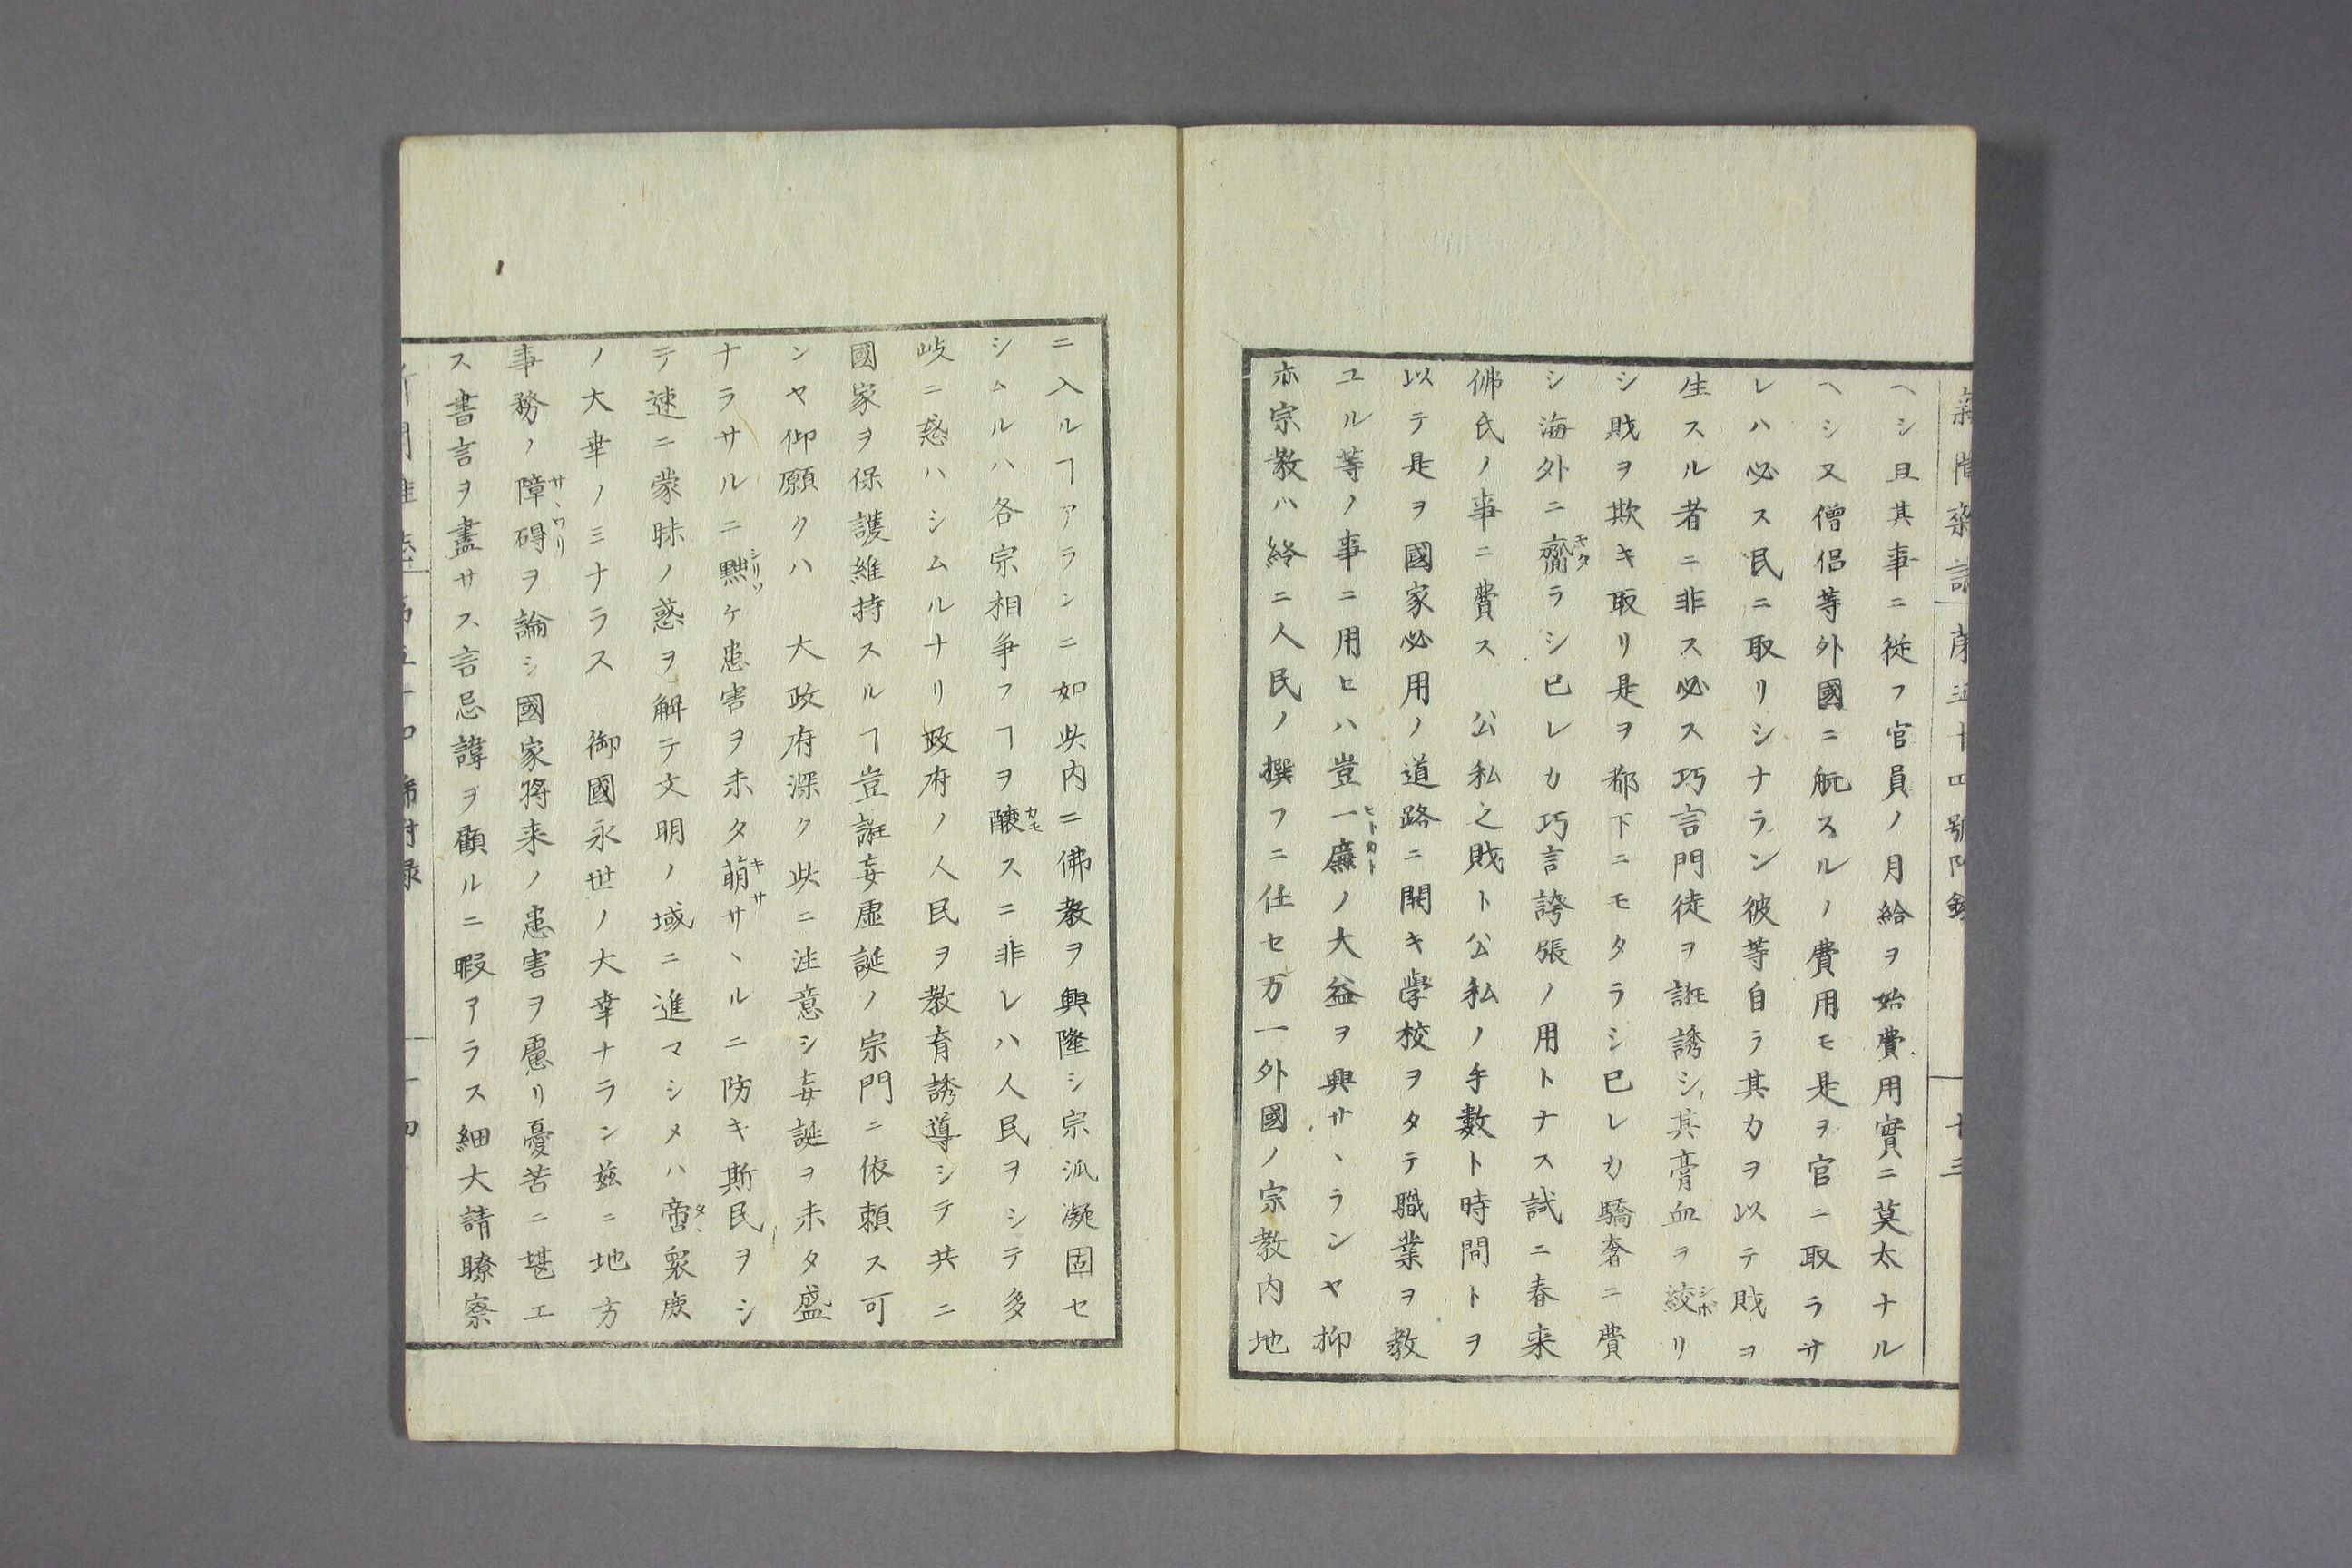 新聞雜誌 第五十四號附録 十三
ヘシ且其事ニ従フ官員ノ月給ヲ始費用實ニ莫太ナル
ヘシ又僧侶等外國ニ航スルノ費用モ是ヲ官ニ取ラサ
レハ必ス民ニ取リシナラン彼等自ラ其力ヲ以テ財ヲ
生スル者ニ非ス必ス巧言門徒ヲ誑誘シ其膏血ヲ絞シホリ
シ財ヲ欺キ取リ是ヲ都下ニモタラシ已レカ驕奢ニ費
シ海外ニ齎モタラシ已レカ巧言誇張ノ用トナス試ニ春来
佛氏ノ事ニ費ス 公私之財ト公私ノ手數ト時間トヲ
以テ是ヲ國家必用ノ道路ニ開キ學校ヲタテ職業ヲ教
ユル等ノ事ニ用ヒハ豈一廉ヒトカトノ大益ヲ興サヽランヤ抑
亦宗教ハ終ニ人民ノ撰フニ任セ万一外國ノ宗教内地
ニ入ルヿアランニ如此内ニ佛教ヲ興隆シ宗派凝固セ
シムルハ各宗相争フヿヲ醸カモスニ非レハ人民ヲシテ多
岐ニ惑ハシムルナリ政府ノ人民ヲ教育誘導シテ共ニ
國家ヲ保護維持スルヿ豈誑妄虚誕ノ宗門ニ依頼ス可
ンヤ仰願クハ 大政府深ク此ニ注意シ妄誕ヲ未タ盛
ナラサルニ黜シリソケ患害ヲ未タ萌キササヽルニ防キ斯民ヲシ
テ速ニ蒙昧ノ惑ヲ解テ文明ノ域ニ進マシメハ啻タヽ衆庶
ノ大幸ノミナラス 御國永世ノ大幸ナラン茲ニ地方
事務ノ障碍サヽワリヲ論シ國家将来ノ患害ヲ慮リ憂苦ニ堪エ
ス書言ヲ盡サス言忌諱ヲ顧ルニ暇アラス細大請瞭察
新聞雜誌 第五十四號附録 十四